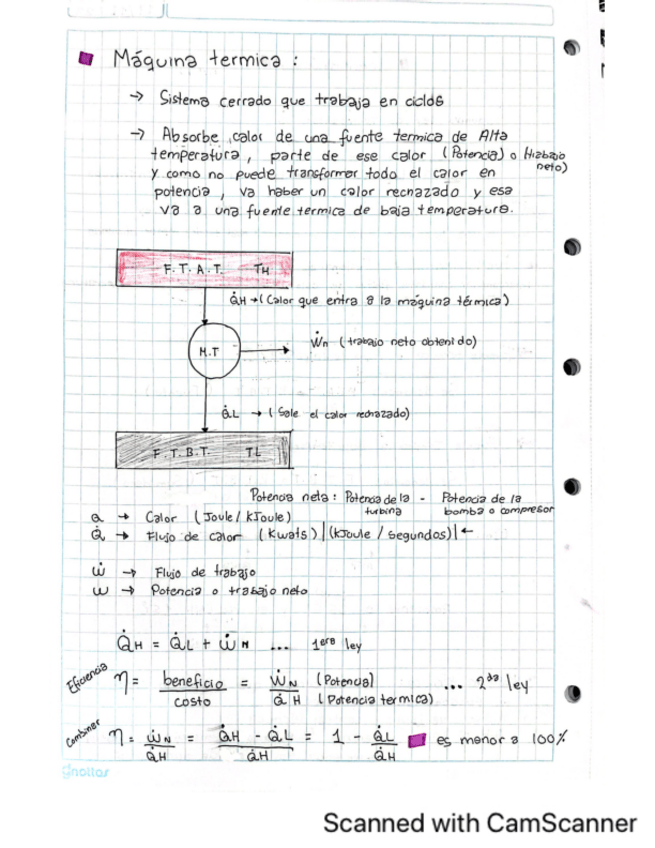 Máquina termica :
→ Sistema cerrado que trabaja en ciclos
→ Absorbe calor de una fuente termica de Alta
temperatura, parte de ese calor (Potencia) o trabajo
neto)
y como no puede transformer todo el calor en
potencia, va haber un calor rechazado y esa
va a una fuente termica de baja temperatura.
F. T. A. T. TH
Q̇H → (Calor que entra a la máquina térmica)
M.T
Ẇn (trabajo neto obtenido)
Q̇L → ( Sale el calor rechazado)
F. T. B. T. TL
Potencia neta : Potencia de la - Potencia de la
turbina bomba o compresor
Q → Calor (Joule / kJoule)
Q̇ → Flujo de calor (Kwats) | (kJoule / segundos) | ←
ẇ → Flujo de trabajo
w → Potencia o trabajo neto
Q̇H = Q̇L + ẆN ... 1era ley
Eficiencia η = beneficio / costo = ẆN / Q̇H (Potencia) (Potencia termica) ... 2da ley
Combiner η = ẆN / Q̇H = Q̇H - Q̇L / Q̇H = 1 - Q̇L / Q̇H es menor a 100%
Scanned with CamScanner